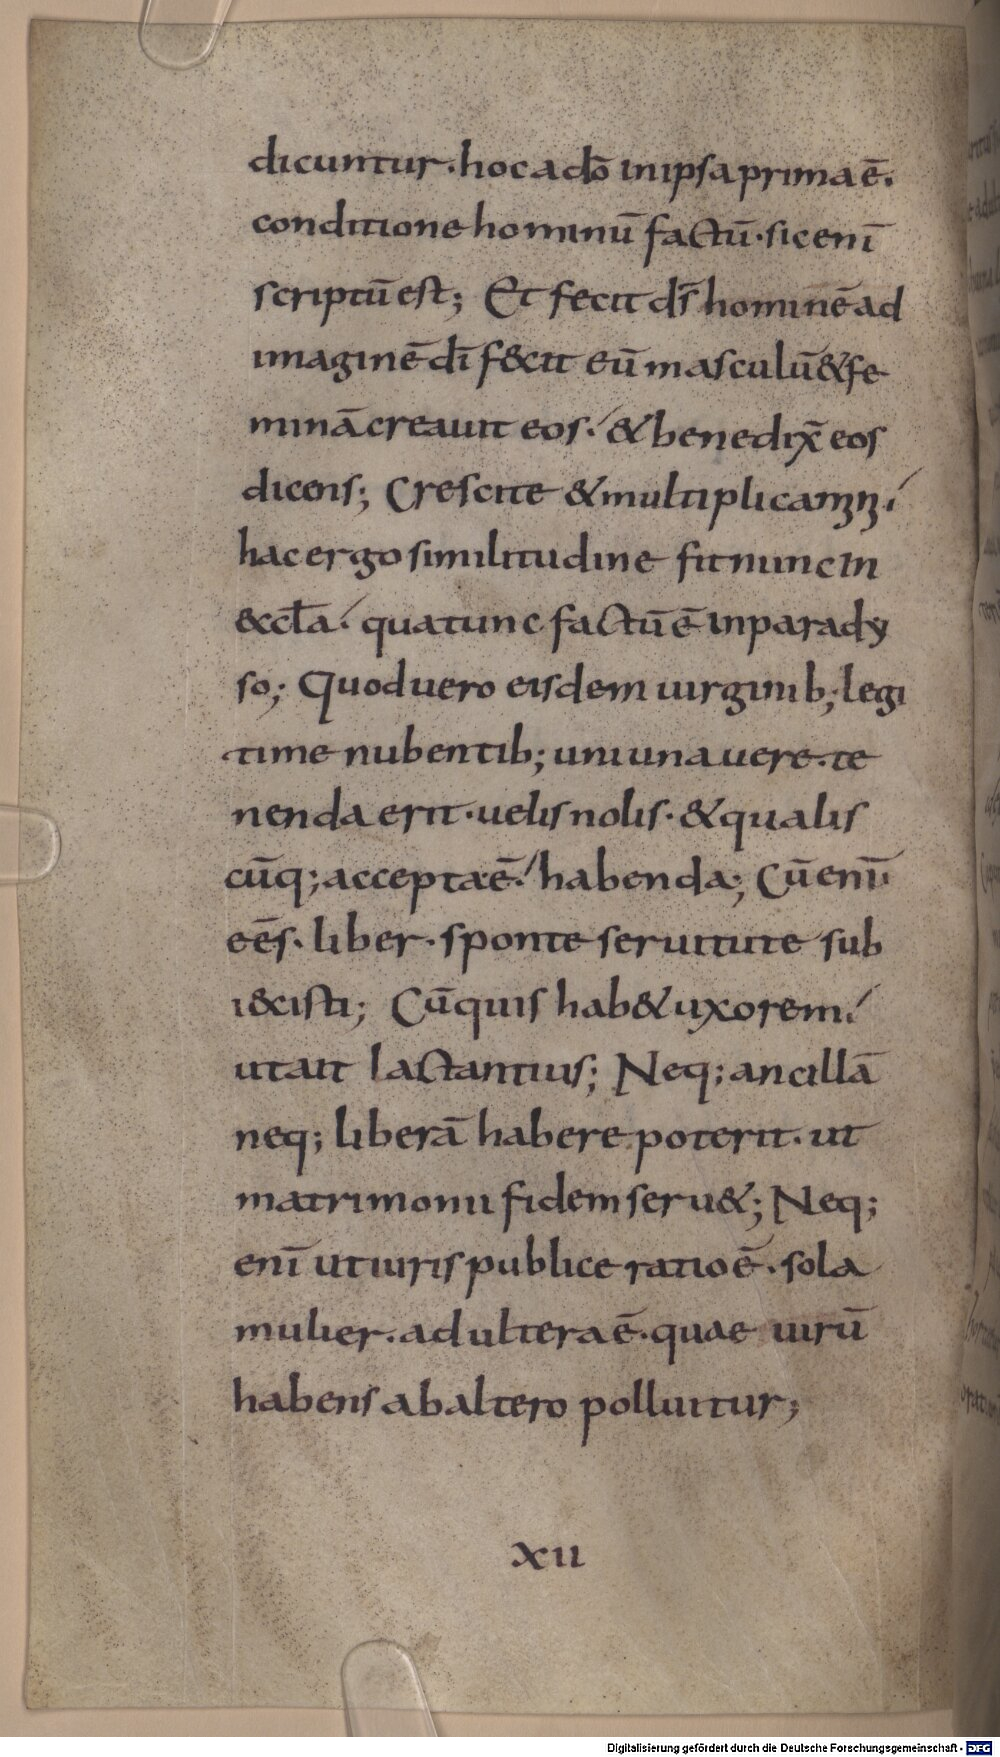 dicuntur. hoc a dō in ipsa prima ē.
conditione hominū factū. sic enī
scriptū est; Et fecit dſ̄ hominē ad
imaginē dī f&cit eū masculū & fe
minā creauit eos. & benedix̄ eos
dicens; Crescite & multiplicam̄
hac ergo similitudine fit nunc in
&cƚa. qua tunc factū ē in parady
so; Quod uero eisdem uirginib; legi
time nubentib; uni una uere. te
nenda erit. uelis nolis. & qualis
cūq; accepta ē. habenda; Cū enī
eēs. liber. sponte seruitute sub
i&cisti; Cū quis hab& uxorem
ut ait lactantius; Neq; ancillā
neq; liberā habere poterit. ut
matrimonii fidem seru&; Neq;
enī ut iuris publice ratio ē. sola
mulier. adultera ē. quae uirū
habens ab altero polluitur;
xii
Digitalisierung gefördert durch die Deutsche Forschungsgemeinschaft - DFG